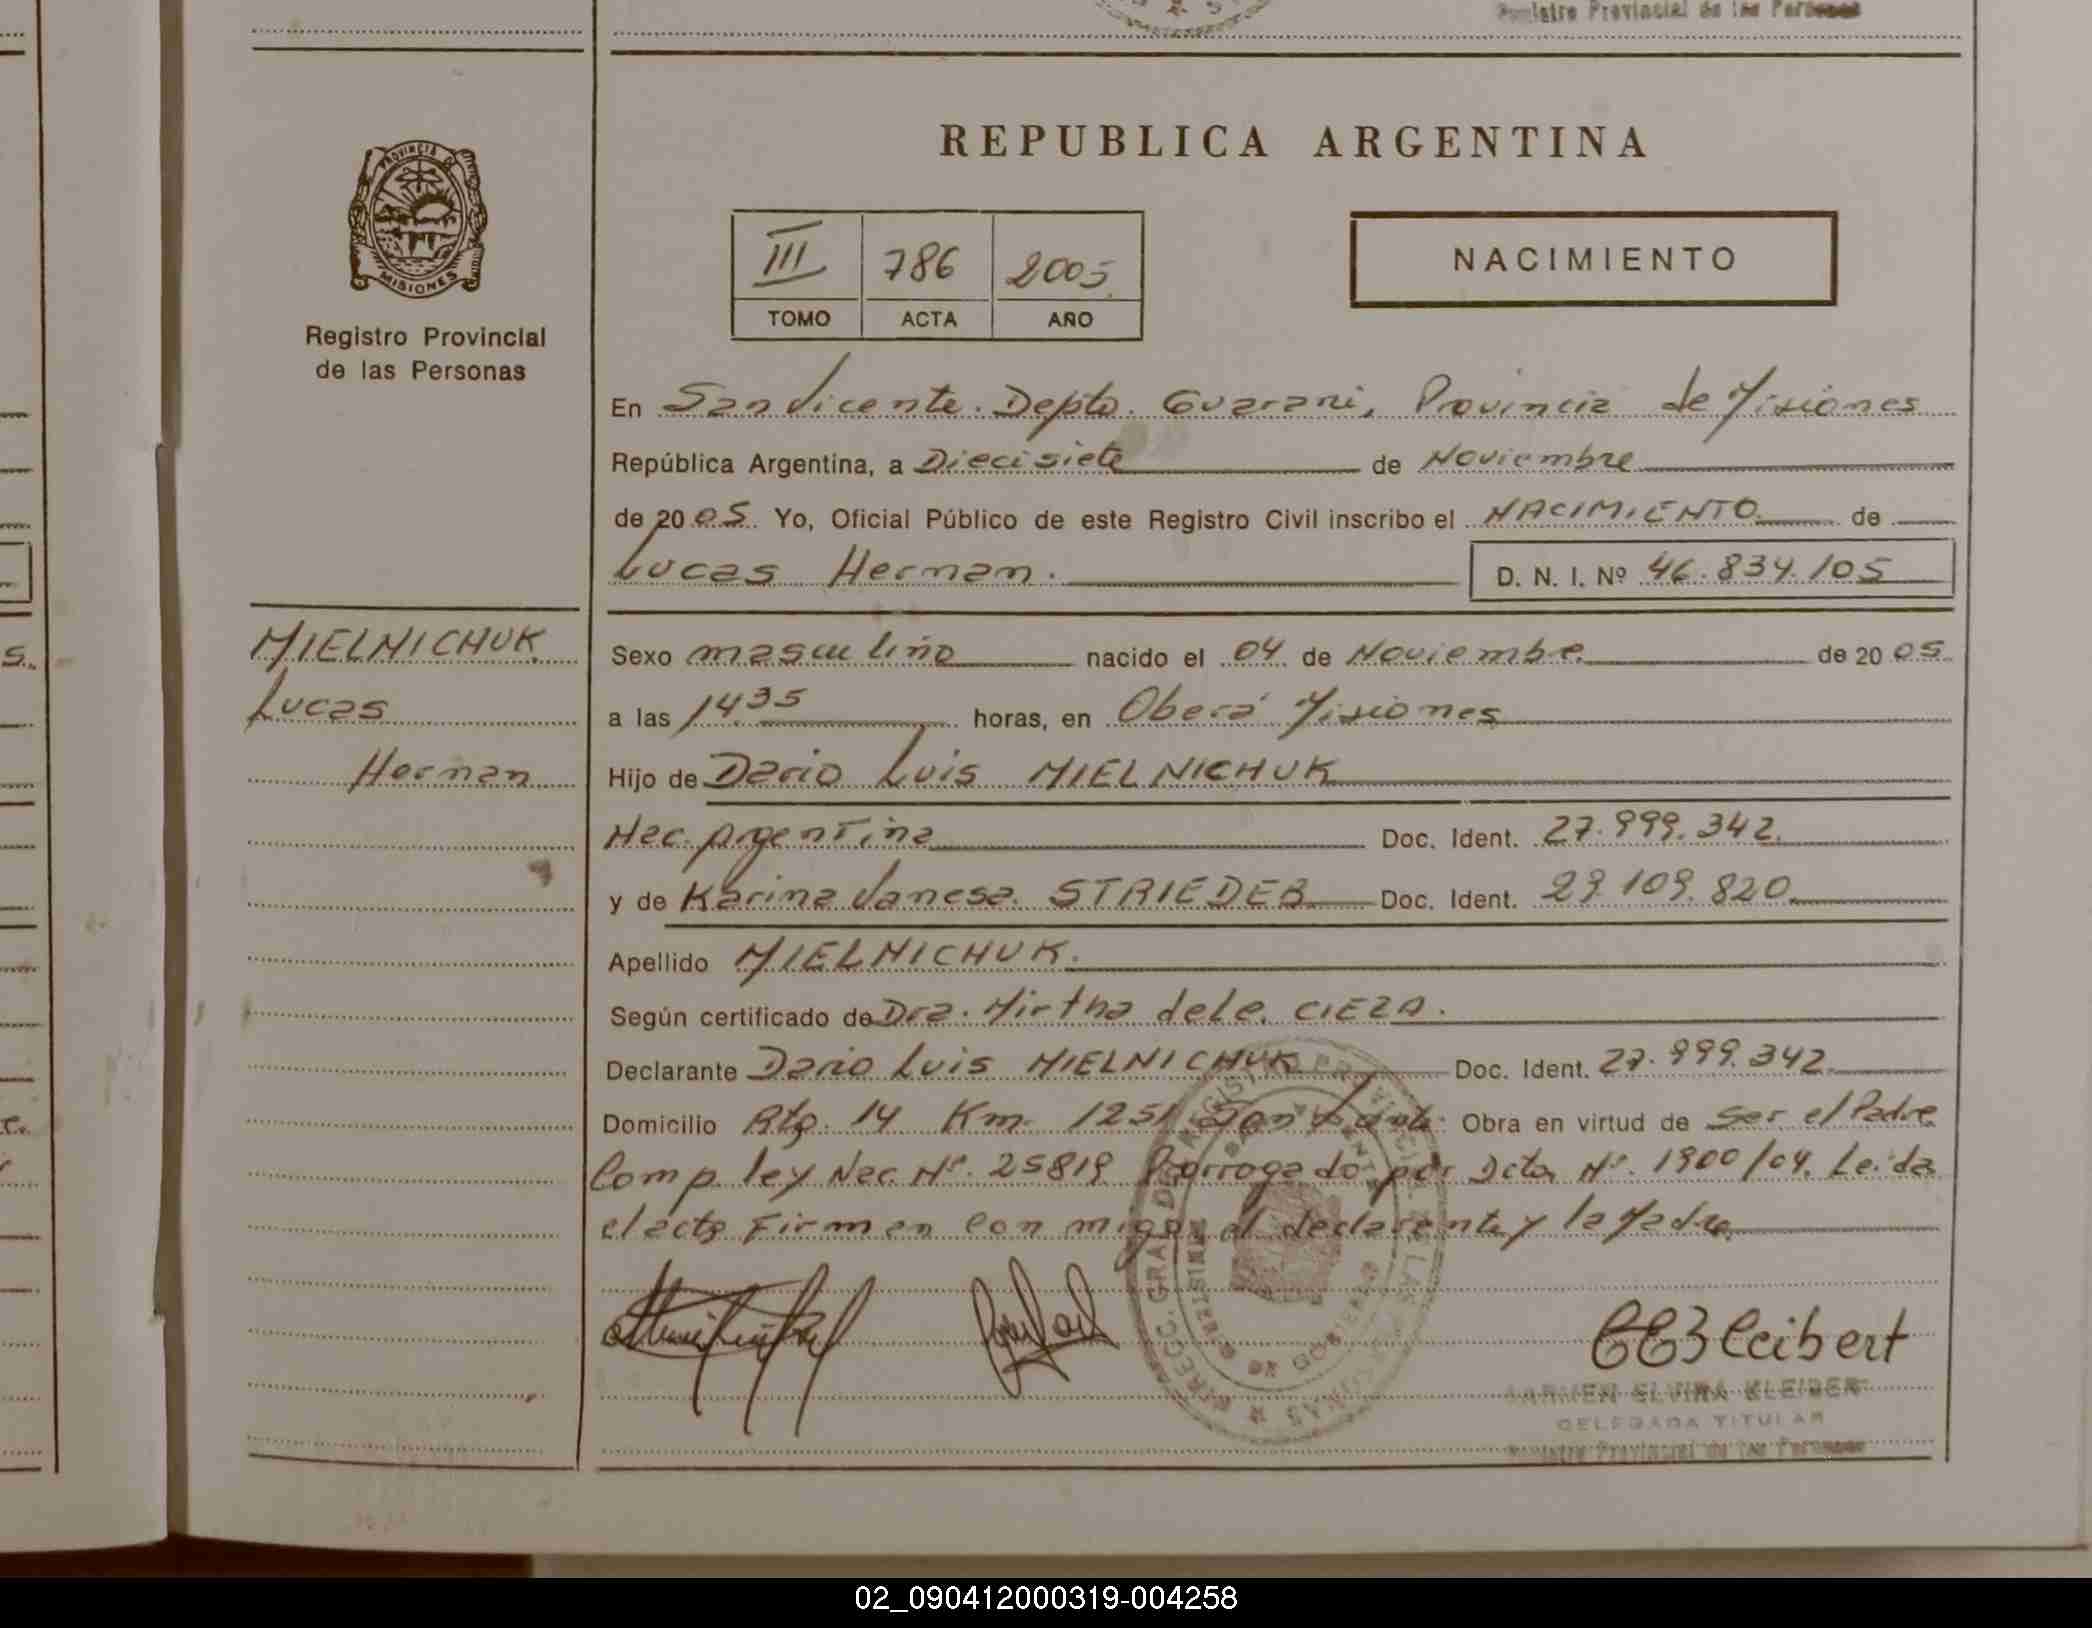 Registro Provincial de las Personas
REPUBLICA ARGENTINA
PROVINCIA DE
MISIONES
Registro Provincial
de las Personas
III 786 2005
TOMO ACTA AÑO
NACIMIENTO
En San Vicente. Depto. Guarani, Provincia de Misiones
República Argentina, a Diecisiete de Noviembre
de 2005. Yo, Oficial Público de este Registro Civil inscribo el NACIMIENTO de
Lucas Hernan. D. N. I. Nº 46.834.105
MIELNICHUK
Lucas
Hernan
Sexo masculino nacido el 04 de Noviembre de 2005
a las 14 35 horas, en Oberá Misiones
Hijo de Dario Luis MIELNICHUK
Nac. Argentina Doc. Ident. 27.999.342.
y de Karina Vanesa STRIEDER Doc. Ident. 29.109.820
Apellido MIELNICHUK.
Según certificado de Dra. Mirtha dele. CIEZA.
Declarante Dario Luis MIELNICHUK Doc. Ident. 27.999.342
Domicilio Rta. 14 Km. 1251 San Vicente. Obra en virtud de Ser el Padre
Comp. ley Nac. Nº. 25819 Prorrogado por Dcto Nº. 1900/04. Leida
el acta Firman con migo el declarante y la Madre
CARMEN ELVIRA KLEIBER
DELEGADA TITULAR
Registro Provincial de las Personas
02_090412000319-004258